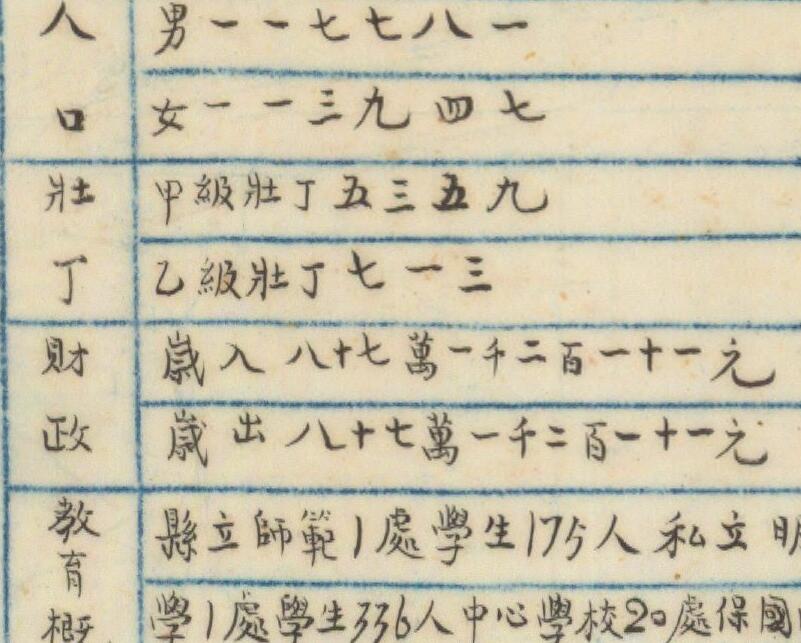 人口
男一一七七八一
女一一三九四七
壯丁
甲級壯丁五三五九
乙級壯丁七一三
財政
歲入八十七萬一千二百一十一元
歲出八十七萬一千二百一十一元
教育概
縣立師範1處學生175人私立明
學1處學生336人中心學校20處保國